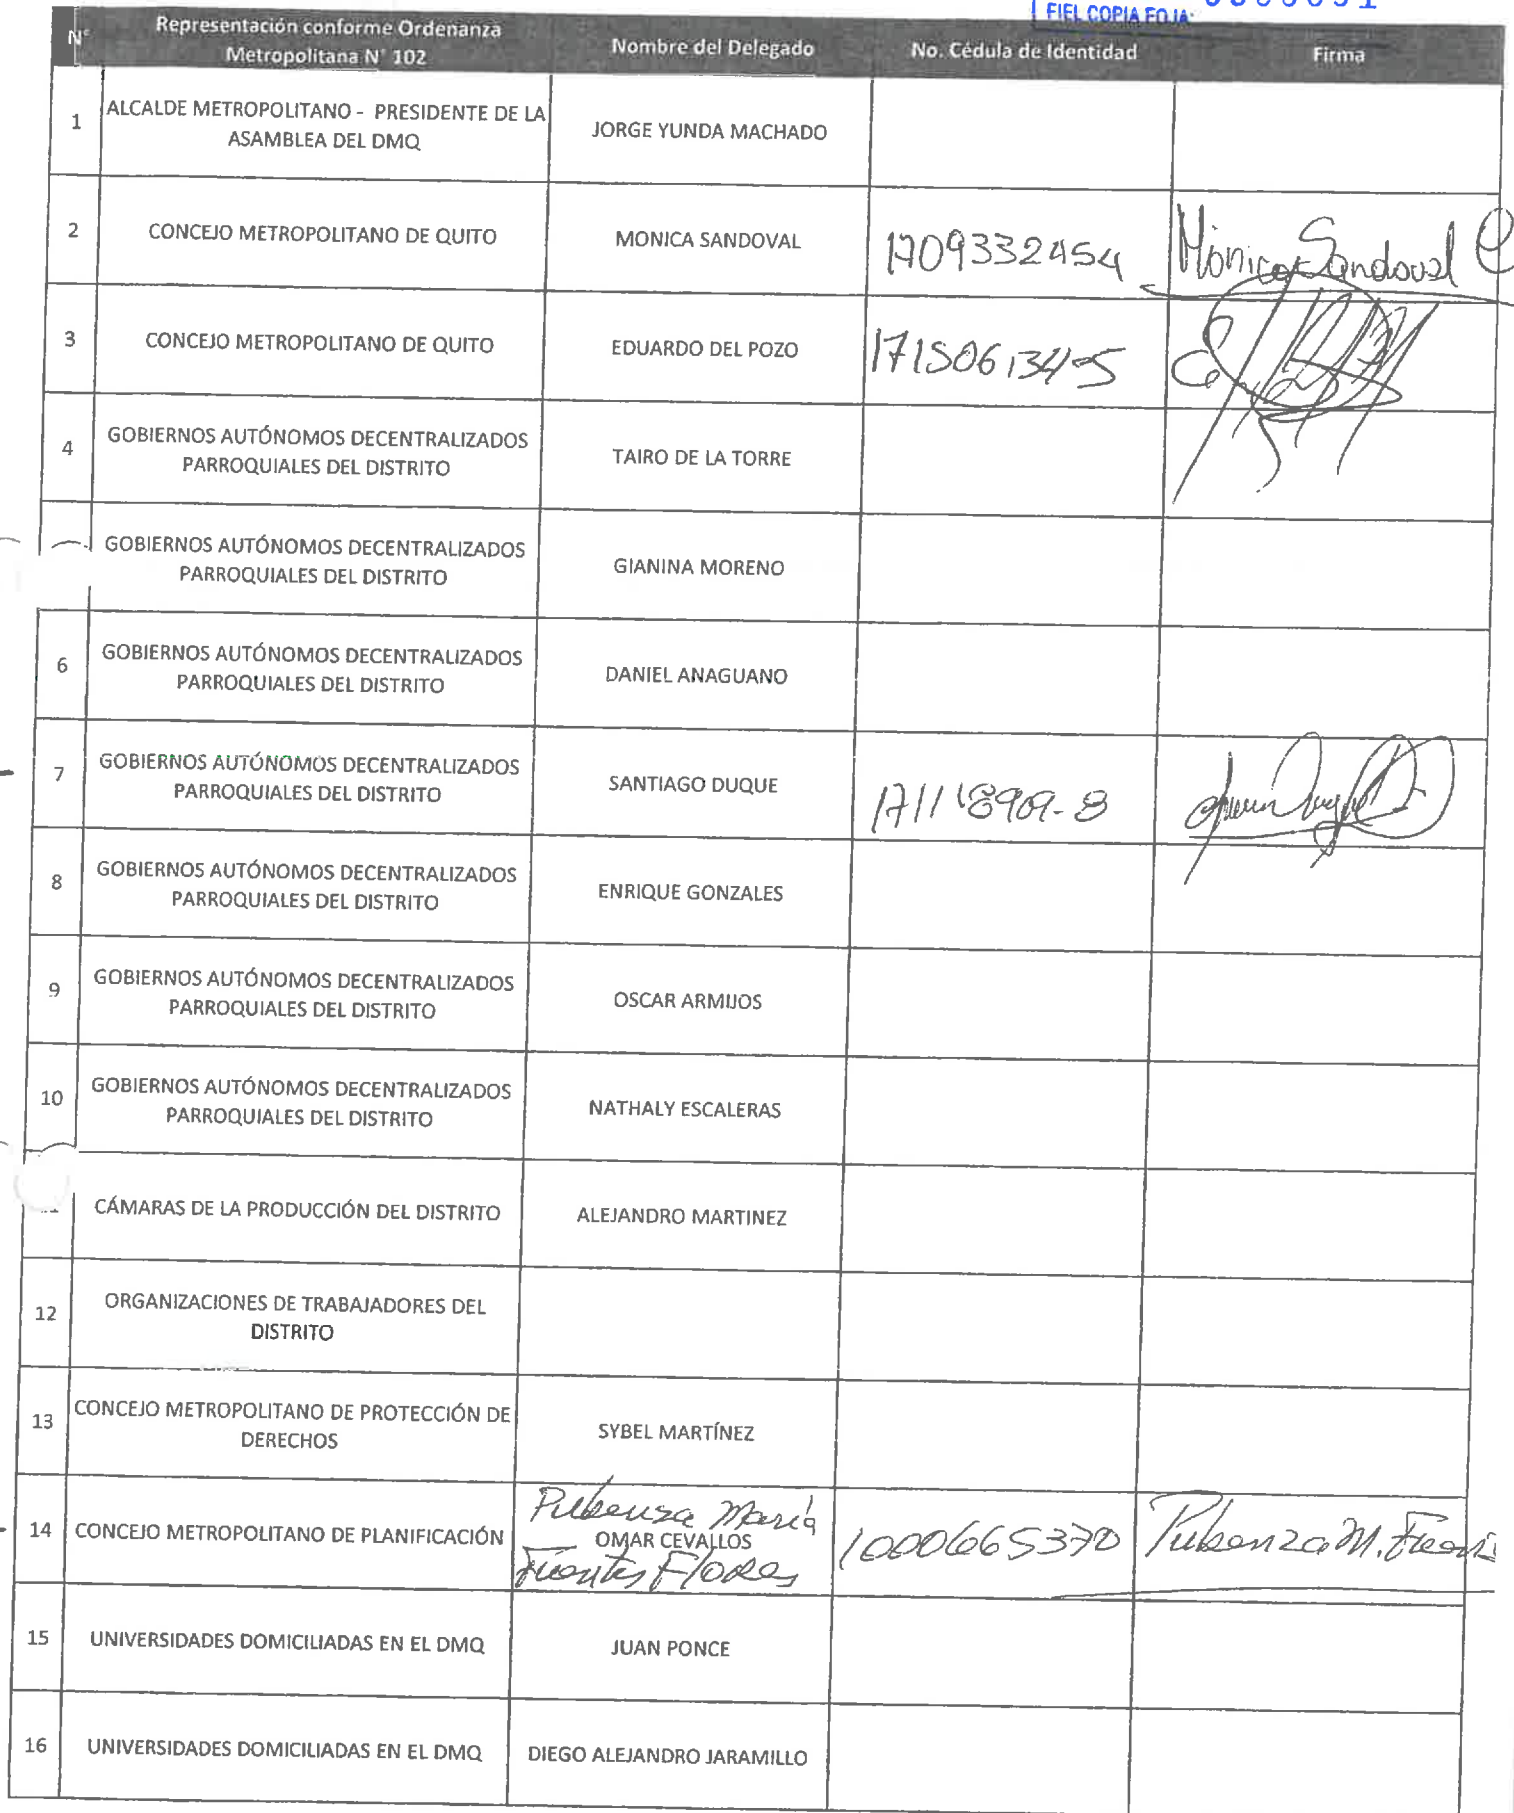 FIEL COPIA FOJA:
N°
Representación conforme Ordenanza
Metropolitana N° 102
Nombre del Delegado
No. Cédula de Identidad
Firma
1
ALCALDE METROPOLITANO - PRESIDENTE DE LA
ASAMBLEA DEL DMQ
JORGE YUNDA MACHADO
2
CONCEJO METROPOLITANO DE QUITO
MONICA SANDOVAL
1709332454
Mónica Sandoval C
3
CONCEJO METROPOLITANO DE QUITO
EDUARDO DEL POZO
171506134-5
4
GOBIERNOS AUTÓNOMOS DECENTRALIZADOS
PARROQUIALES DEL DISTRITO
TAIRO DE LA TORRE
GOBIERNOS AUTÓNOMOS DECENTRALIZADOS
PARROQUIALES DEL DISTRITO
GIANINA MORENO
6
GOBIERNOS AUTÓNOMOS DECENTRALIZADOS
PARROQUIALES DEL DISTRITO
DANIEL ANAGUANO
7
GOBIERNOS AUTÓNOMOS DECENTRALIZADOS
PARROQUIALES DEL DISTRITO
SANTIAGO DUQUE
171118909-8
8
GOBIERNOS AUTÓNOMOS DECENTRALIZADOS
PARROQUIALES DEL DISTRITO
ENRIQUE GONZALES
9
GOBIERNOS AUTÓNOMOS DECENTRALIZADOS
PARROQUIALES DEL DISTRITO
OSCAR ARMIJOS
10
GOBIERNOS AUTÓNOMOS DECENTRALIZADOS
PARROQUIALES DEL DISTRITO
NATHALY ESCALERAS
CÁMARAS DE LA PRODUCCIÓN DEL DISTRITO
ALEJANDRO MARTINEZ
12
ORGANIZACIONES DE TRABAJADORES DEL
DISTRITO
13
CONCEJO METROPOLITANO DE PROTECCIÓN DE
DERECHOS
SYBEL MARTÍNEZ
14
CONCEJO METROPOLITANO DE PLANIFICACIÓN
Pubenza María
OMAR CEVALLOS
Fuentes Flores
1000665370
Pubenza M. Fuentes
15
UNIVERSIDADES DOMICILIADAS EN EL DMQ
JUAN PONCE
16
UNIVERSIDADES DOMICILIADAS EN EL DMQ
DIEGO ALEJANDRO JARAMILLO